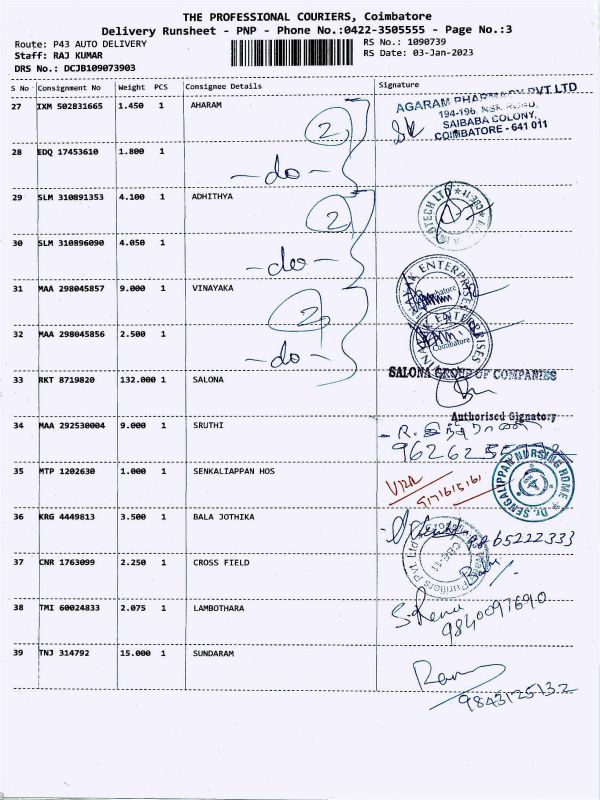 THE PROFESSIONAL COURIERS, Coimbatore
Delivery Runsheet - PNP - Phone No.:0422-3505555 - Page No.:3
Route: P43 AUTO DELIVERY
Staff: RAJ KUMAR
DRS No.: DCJB109073903
RS No.: 1090739
RS Date: 03-Jan-2023
S No Consignment No Weight PCS Consignee Details Signature
27 IXM 502831665 1.450 1 AHARAM
2
AGARAM PHARMACY PVT LTD
194-196, NSR ROAD,
SAIBABA COLONY,
COIMBATORE - 641 011
28 EDQ 17453610 1.800 1
- do -
29 SLM 310891353 4.100 1 ADHITHYA
2
30 SLM 310896090 4.050 1
- do -
31 MAA 298045857 9.000 1 VINAYAKA
2
ENTERPRISES
Coimbatore
32 MAA 298045856 2.500 1
- do -
ENTERPRISES
Coimbatore
33 RKT 8719820 132.000 1 SALONA
SALONA GROUP OF COMPANIES
Authorised Signatory
34 MAA 292530004 9.000 1 SRUTHI
35 MTP 1202630 1.000 1 SENKALIAPPAN HOS
Dr. SENGALIPPAN NURSING HOME
36 KRG 4449813 3.500 1 BALA JOTHIKA
37 CNR 1763099 2.250 1 CROSS FIELD
38 TMI 60024833 2.075 1 LAMBOTHARA
S. Renu
9840097690
39 TNJ 314792 15.000 1 SUNDARAM
9843125132